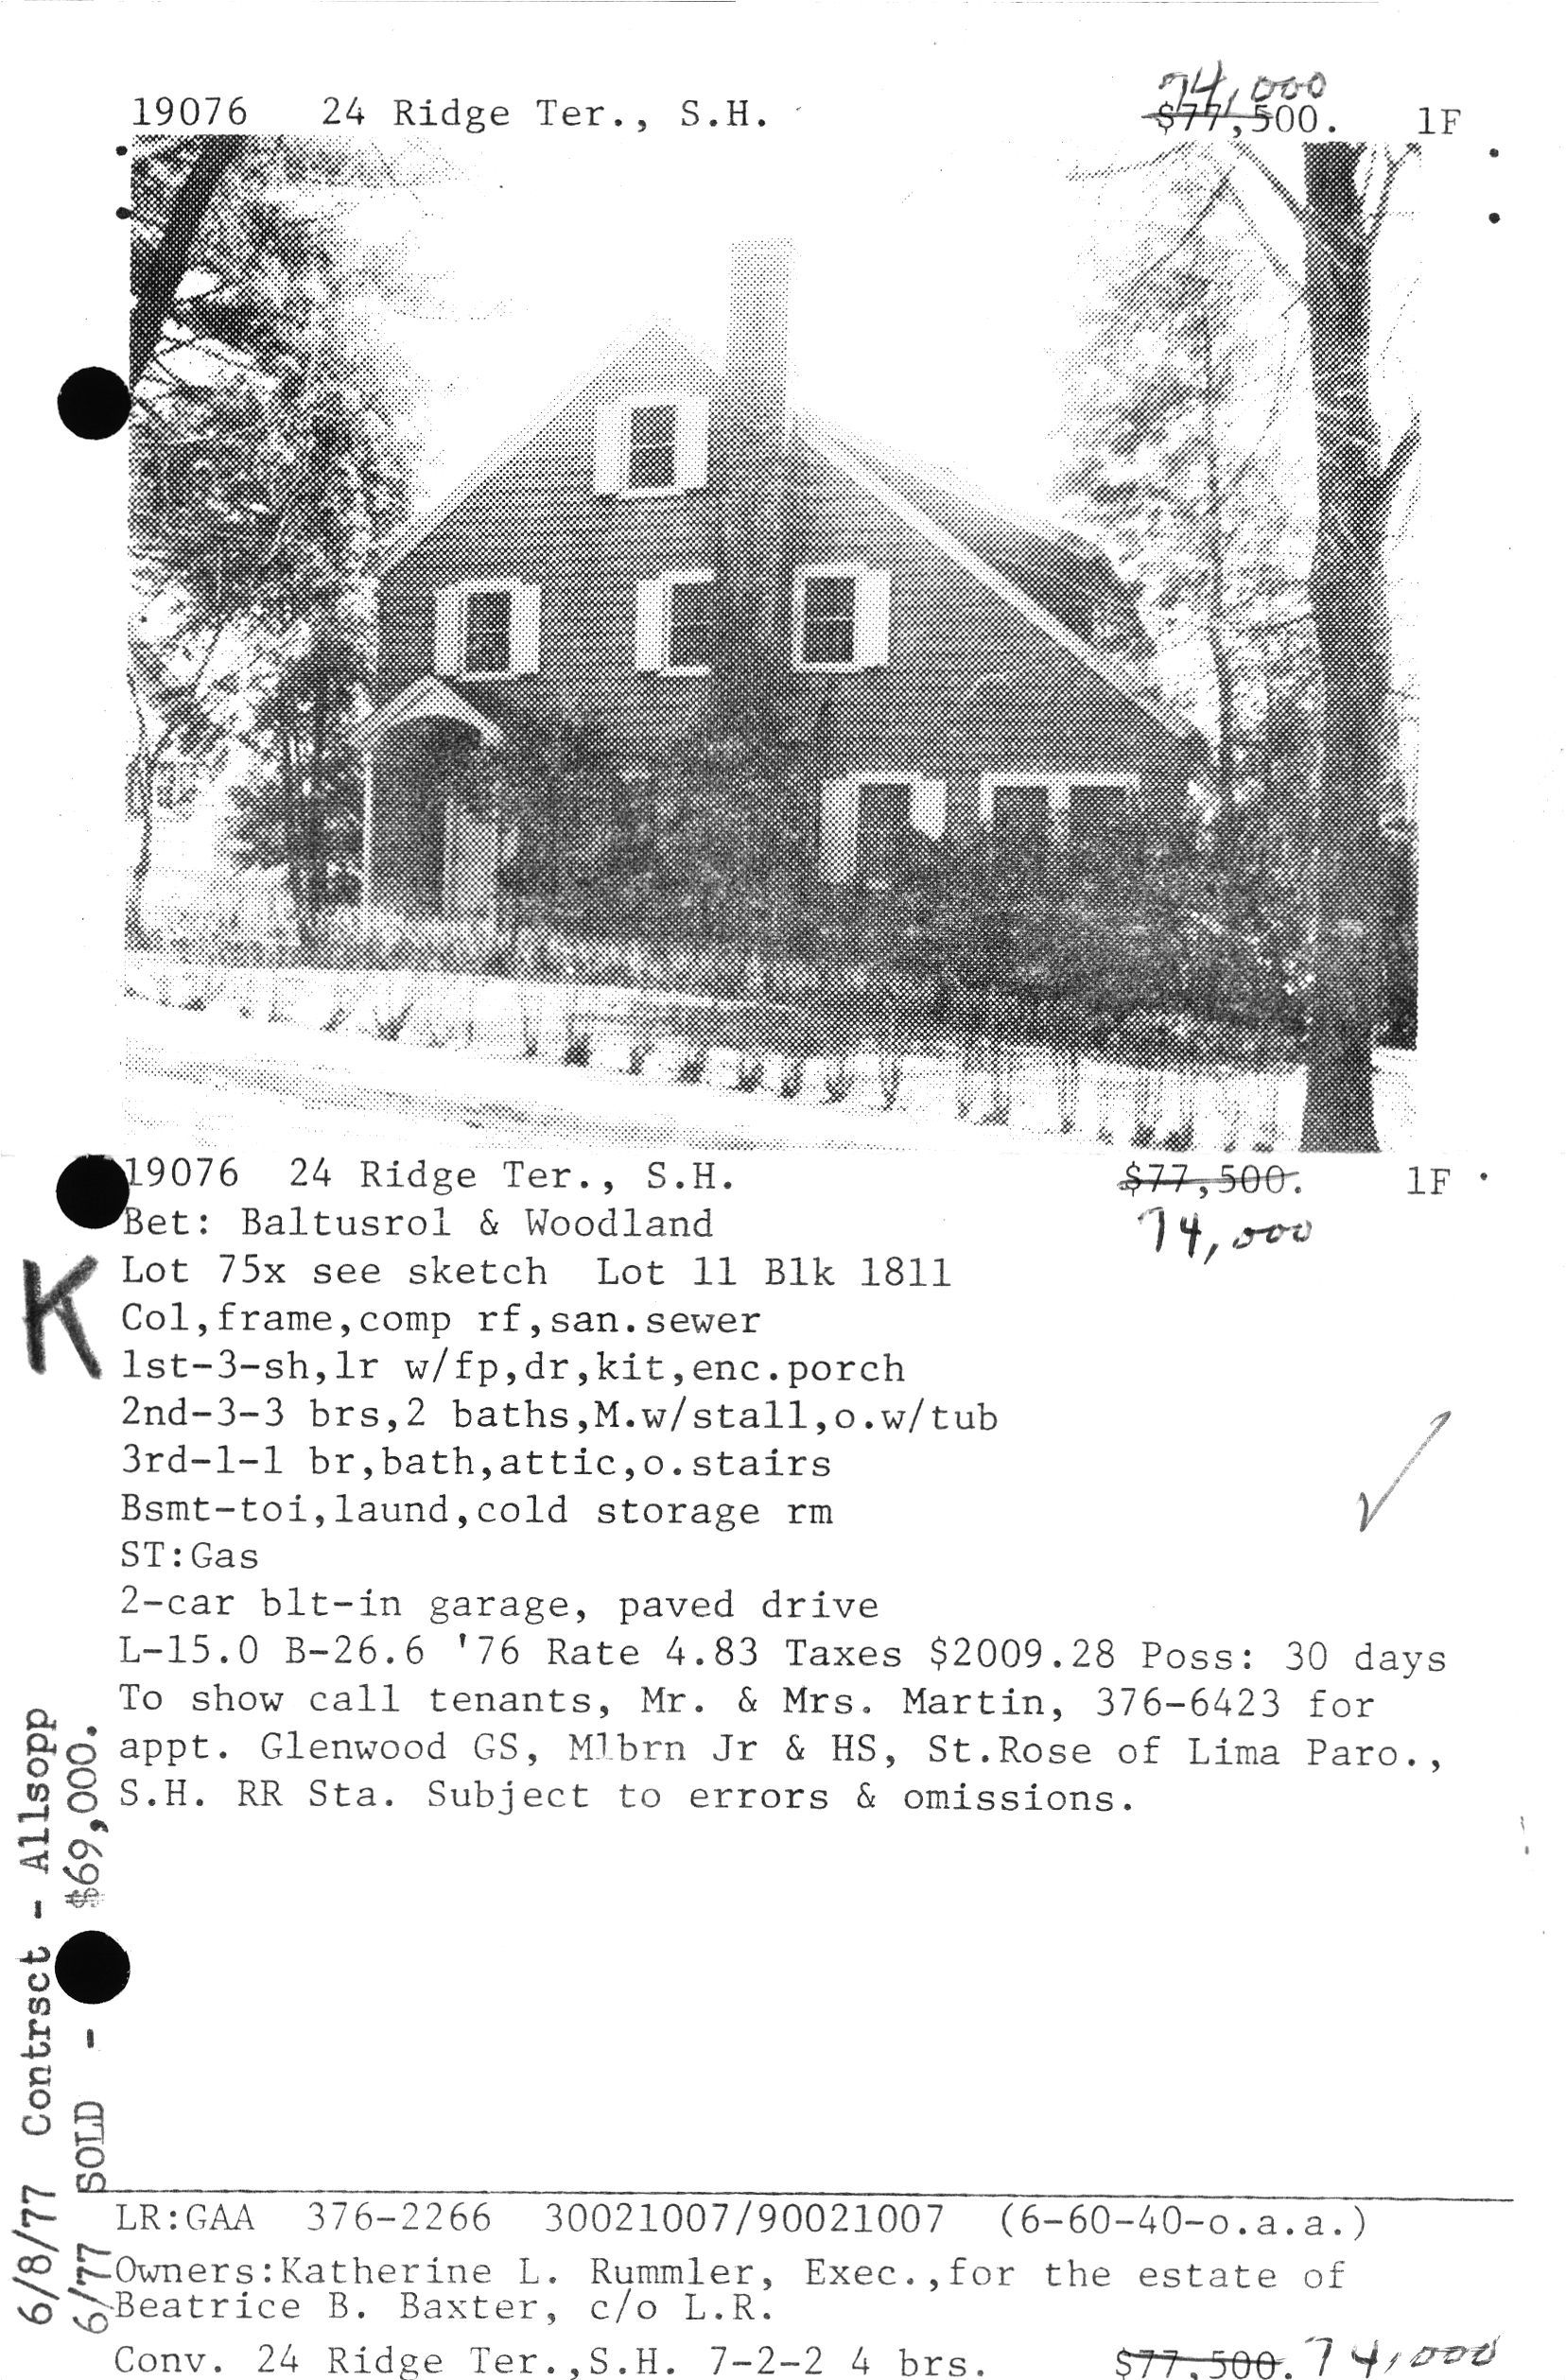 74,000
19076 24 Ridge Ter., S.H. $77,500. 1F
19076 24 Ridge Ter., S.H. $77,500. 1F
Bet: Baltusrol & Woodland 74,000
K
Lot 75x see sketch Lot 11 Blk 1811
Col,frame,comp rf,san.sewer
1st-3-sh,lr w/fp,dr,kit,enc.porch
2nd-3-3 brs,2 baths,M.w/stall,o.w/tub
3rd-1-1 br,bath,attic,o.stairs
Bsmt-toi,laund,cold storage rm
ST:Gas
2-car blt-in garage, paved drive
L-15.0 B-26.6 '76 Rate 4.83 Taxes $2009.28 Poss: 30 days
To show call tenants, Mr. & Mrs. Martin, 376-6423 for
appt. Glenwood GS, Mlbrn Jr & HS, St.Rose of Lima Paro.,
S.H. RR Sta. Subject to errors & omissions.
6/8/77 Contrsct - Allsopp
6/77 SOLD - $69,000.
LR:GAA 376-2266 30021007/90021007 (6-60-40-o.a.a.)
Owners:Katherine L. Rummler, Exec.,for the estate of
Beatrice B. Baxter, c/o L.R.
Conv. 24 Ridge Ter.,S.H. 7-2-2 4 brs. $77,500. 74,000